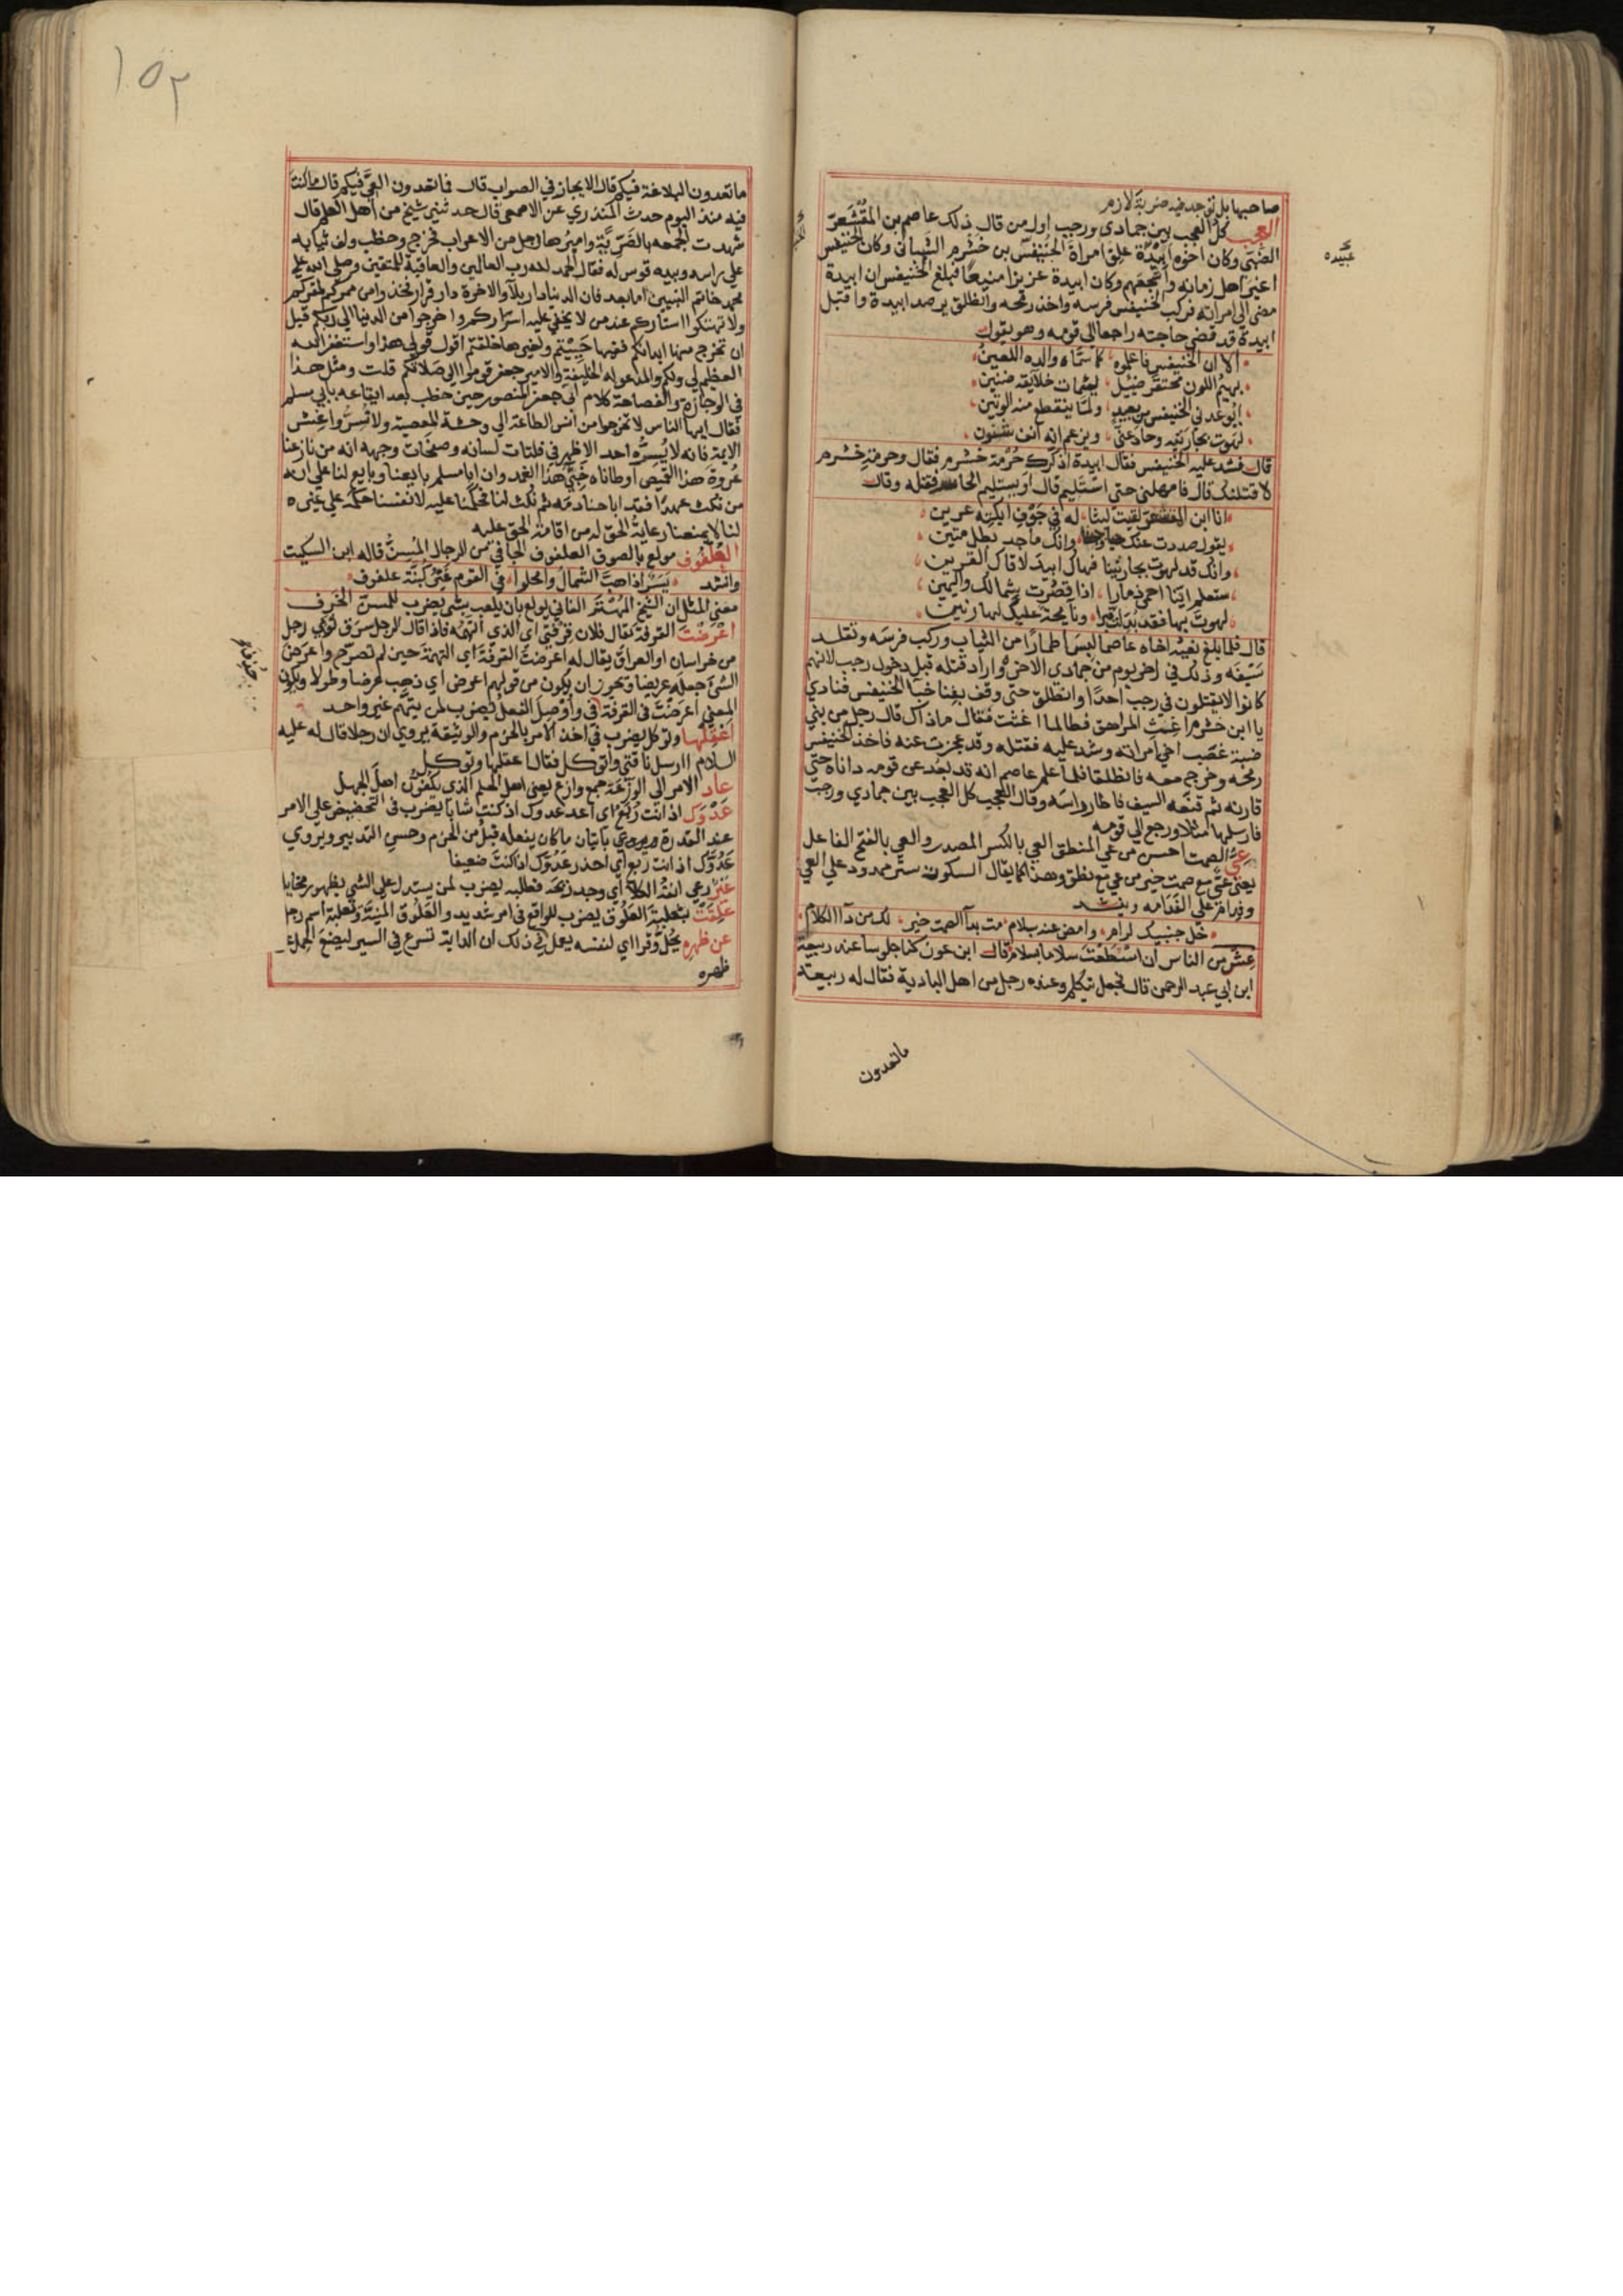 صاحبها بل توجد فيه ضربة لازم
العجب كل العجب بين جمادى ورجب اول من قال ذلك عاصم بن المقشعر
الضبي وكان اخوه ابيدة علق امراة الخنيفس بن خشرم الشيباني وكان الخنيفس
اغير اهل زمانه واشجعهم وكان ابيدة عزيزا منيعا فبلغ الخنيفس ان ابيدة
مضى الى امراته فركب الخنيفس فرسه واخذ رمحه وانطلق يرصد ابيدة واقبل
ابيدة قد قضى حاجته راجعا الى قومه وهو يقول
الا ان الخنيفس فاعلموه كما سماه والده اللعين
بهيم اللون محتقر ضئيل لئيمات خلائقه ضنين
ايوعدني الخنيفس من بعيد ولما ينقطع منه الوتين
لهوت بجارتيه وحاد عني ويزعم انه انف شنون
قال فشد عليه الخنيفس فقال ابيدة اذكرك حرمة خشرم فقال وحرمة خشرم
لاقتلنك قال فامهلني حتى استليم قال اويستليم الحاسر فقتله وقال
انا ابن المقشعر لقيت ليثا له في جوف ايكته عرين
يقول صددت عنك وانك ماجد بطل متين
وانك قد لهوت بجارتينا فهاك ابيد لاقاك القرين
ستعلم اينا احمى ذمارا اذا قصرت شمالك واليمين
لهوت بها فقد بدلت قبرا ونايحة عليك لها رنين
قال فلما بلغ نعيه اخاه عاصما لبس اطمارا من الثياب وركب فرسه وتقلد
سيفه وذلك في اخر يوم من جمادى الاخرة واراد قتله قبل دخول رجب لانهم
كانوا لايقتلون في رجب احدا وانطلق حتى وقف بفنا خبا الخنيفس فنادى
يا ابن خشرم اغث المرهق فطالما اغثت فقال ماذاك قال رجل من بني
ضبة غصب اخي امراته وشد عليه فقتله وقد عجزت عنه فاخذ الخنيفس
رمحه وخرج معه فانطلقا فلما علم عاصم انه قد بعد عن قومه داناه حتى
قارنه ثم قنعه السيف فاطار راسه وقال العجب كل العجب بين جمادى ورجب
فارسلها مثلا ورجع الى قومه
عي الصمت احسن من عي المنطق العي بالكسر المصدر والعي بالفتح الفاعل
يعني عي مع صمت خير من عي مع نطق وهذا كما يقال السكوت ستر ممدود على العي
وفدام على الفدامه وينشد
خل جنبيك لرام وامض عنه بسلام مت بداء الصمت خير لك من داء الكلام
عش من الناس ان استطعت سلاما بسلام قال ابن عون كنا جلوسا عند ربيعة
ابن ابي عبد الرحمن قال فجعل يتكلم وعنده رجل من اهل البادية فقال له ربيعة
ماتعدون
عبيده
١٥٢
ماتعدون البلاغة فيكم قال الايجاز في الصواب قال فما تعدون العي فيكم قال ماكنت
فيه منذ اليوم حدث المنذري عن الاصمعي قال حدثني شيخ من اهل العلم قال
شهدت الجمعه بالضرية واميرها رجل من الاعراب فخرج وخطب ولف ثيابه
على راسه وبيده قوس له فقال الحمد لله رب العالمين والعاقبة للمتقين وصلى الله على
محمد خاتم النبيين اما بعد فان الدنيا دار بلاء والاخرة دار قرار فخذوا من ممركم لمقركم
ولا تهتكوا استاركم عند من لا يخفى عليه اسراركم واخرجوا من الدنيا الى ربكم قبل
ان تخرج منها ابدانكم ففيها حييتم ولغيرها خلقتم اقول قولي هذا واستغفر الله
العظيم لي ولكم والمدعو له الخليفة والامير جعفر قوموا الى صلاتكم قلت ومثل هذا
في الوجازة والفصاحة كلام ابي جعفر المنصور حين خطب بعد ايقاعه بابي مسلم
فقال ايها الناس لا تخرجوا من انس الطاعة الى وحشة المعصية ولا تسروا غش
الايمة فانه لا يسره احد الا ظهر في فلتات لسانه وصفحات وجهه انه من نازعنا
عروة هذا القميص اوطاناه خبي هذا الغمد وان ابا مسلم بايعنا وبايع لنا على انه
من نكث عهدا فقد اباحنا دمه ثم نكث لنا فحكمنا عليه لانفسنا حكمه على غيره
لنا لا يمنعنا رعاية الحق له من اقامة الحق عليه
العلفوف مولع بالصوف العلفوف الجافي من الرجال المسن قاله ابن السكيت
وانشد يسر اذا هب الشمال وامحلوا في القوم غير كبنة علفوف
معنى المثل ان الشيخ المهتر الفاني يولع بان يلعب بشي يضرب للمسن الخرف
اعرضت القرفة يقال فلان قرفتي اي الذي اتهمه فاذا قال الرجل سرق ثوبي رجل
من خراسان او العراق يقال له اعرضت القرفة اي التهمة حين لم تصرح واعرض
الشي جعله عريضا ويجوز ان يكون من قولهم اعرض اي ذهب عرضا وطولا ويكون
المعنى اعرضت في القرفة في واوصل الفعل يضرب لمن يتهم غير واحد
اعقلها وتوكل يضرب في اخذ الامر بالحزم والوثيقة يروي ان رجلا قال له عليه
السلام اارسل ناقتي واتوكل فقال اعقلها وتوكل
عاد الامر الى الوزعة جمع وازع يعني اهل الحلم الذي يكفون اهل الجهل
عدوك اذ انت ربع اي اعد عدوك اذ كنت شابا يضرب في التحضيض على الامر
عند القدرة باتيان ماكان يفعله قبل من الحزم وحسن التدبير ويروي
عدوك اذ انت ربع اي احذر عدوك اذا كنت ضعيفا
رعى انف الكلا اي وجد ريحه فطلبه يضرب لمن يستدل على الشي بظهور مخايل
علقت بثعلبة العلوق يضرب للواقع في امر شديد والعلوق المنية وثعلبة اسم رجل
عن ظهره يحل وقرا اي لنفسه يعمل في ذلك ان الدابة تسرع في السير ليضع الحمل عن
ظهره